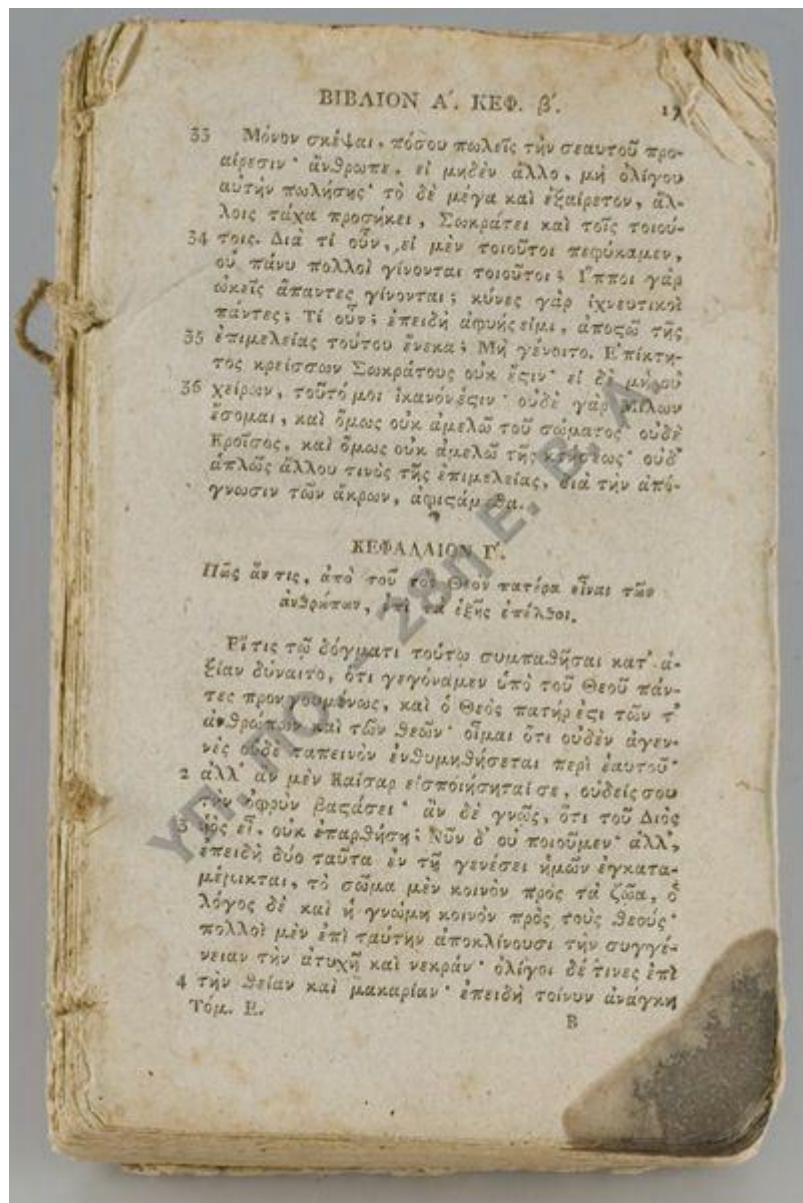 ΒΙΒΛΙΟΝ Α΄. ΚΕΦ. β΄. 17
33 Μόνον σκέψαι, πόσου πωλεῖς τὴν σεαυτοῦ προ-
αίρεσιν· ἄνθρωπε, εἰ μηδὲν ἄλλο, μὴ ὀλίγου
αὐτὴν πωλήσῃς· τὸ δὲ μέγα καὶ ἐξαίρετον, ἄλ-
λοις τάχα προσήκει, Σωκράτει καὶ τοῖς τοιού-
34 τοις. Διὰ τί οὖν, εἰ μὲν τοιοῦτοι πεφύκαμεν,
οὐ πάνυ πολλοὶ γίνονται τοιοῦτοι; Ἵπποι γὰρ
ὠκεῖς ἅπαντες γίνονται; κύνες γὰρ ἰχνευτικοὶ
πάντες; Τί οὖν; ἐπειδὴ ἀφυής εἰμι, ἀποςῶ τῆς
35 ἐπιμελείας τούτου ἕνεκα; Μὴ γένοιτο. Ἐπίκτη-
τος κρείσσων Σωκράτους οὐκ ἔςιν· εἰ δὲ μὴ, οὐ
36 χείρων, τοῦτό μοι ἱκανόν ἐςιν· οὐδὲ γὰρ Μίλων
ἔσομαι, καὶ ὅμως οὐκ ἀμελῶ τοῦ σώματος· οὐδὲ
Κροῖσος, καὶ ὅμως οὐκ ἀμελῶ τῆς κτήσεως· οὐδ᾽
ἁπλῶς ἄλλου τινὸς τῆς ἐπιμελείας, διὰ τὴν ἀπό-
γνωσιν τῶν ἄκρων, ἀφιςάμεθα.
ΚΕΦΑΛΑΙΟΝ Γ΄.
Πῶς ἄν τις, ἀπὸ τοῦ τὸν Θεὸν πατέρα εἶναι τῶν
ἀνθρώπων, ἐπὶ τὰ ἑξῆς ἐπέλθοι.
Εἴ τις τῷ δόγματι τούτῳ συμπαθῆσαι κατ᾽ ἀ-
ξίαν δύναιτο, ὅτι γεγόναμεν ὑπὸ τοῦ Θεοῦ πάν-
τες προηγουμένως, καὶ ὁ Θεὸς πατήρ ἐςι τῶν τ᾽
ἀνθρώπων καὶ τῶν θεῶν· οἶμαι ὅτι οὐδὲν ἀγεν-
νὲς οὐδὲ ταπεινὸν ἐνθυμηθήσεται περὶ ἑαυτοῦ·
2 ἀλλ᾽ ἂν μὲν Καίσαρ εἰσποιήσηταί σε, οὐδείς σου
τὴν ὀφρὺν βαςάσει· ἂν δὲ γνῷς, ὅτι τοῦ Διὸς
3 ὑιὸς εἶ, οὐκ ἐπαρθήσῃ; Νῦν δ᾽ οὐ ποιοῦμεν· ἀλλ᾽,
ἐπειδὴ δύο ταῦτα ἐν τῇ γενέσει ἡμῶν ἐγκατα-
μέμικται, τὸ σῶμα μὲν κοινὸν πρὸς τὰ ζῶα, ὁ
λόγος δὲ καὶ ἡ γνώμη κοινὸν πρὸς τοὺς θεούς·
πολλοὶ μὲν ἐπὶ ταύτην ἀποκλίνουσι τὴν συγγέ-
νειαν τὴν ἀτυχῆ καὶ νεκράν· ὀλίγοι δέ τινες ἐπὶ
4 τὴν θείαν καὶ μακαρίαν· ἐπειδὴ τοίνυν ἀνάγκη
Τόμ. Ε. Β
ΥΠ. ΠΟ - 28η Ε. Β. Α.